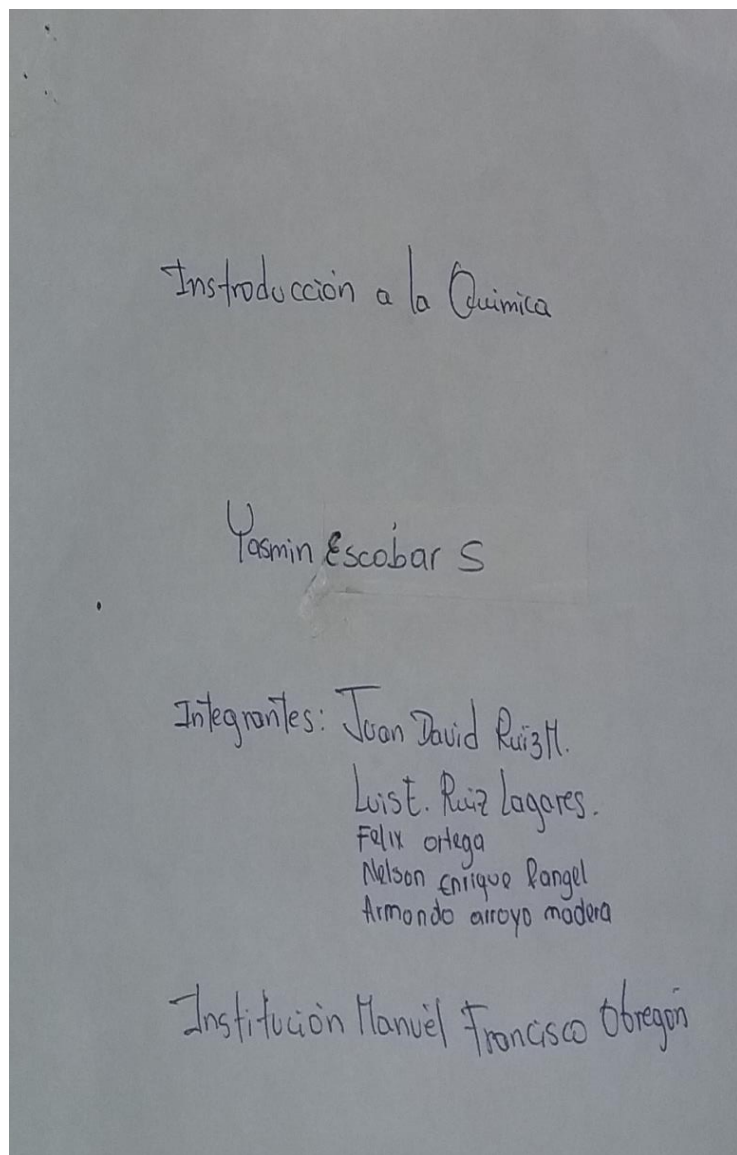 Instroducción a la Quimica
Yasmin Escobar S
Integrantes: Juan David Ruiz M.
Luis E. Ruiz Lagares.
Felix ortega
Nelson Enrique Rangel
Armando arroyo madera
Institución Manuèl Francisco Obregón